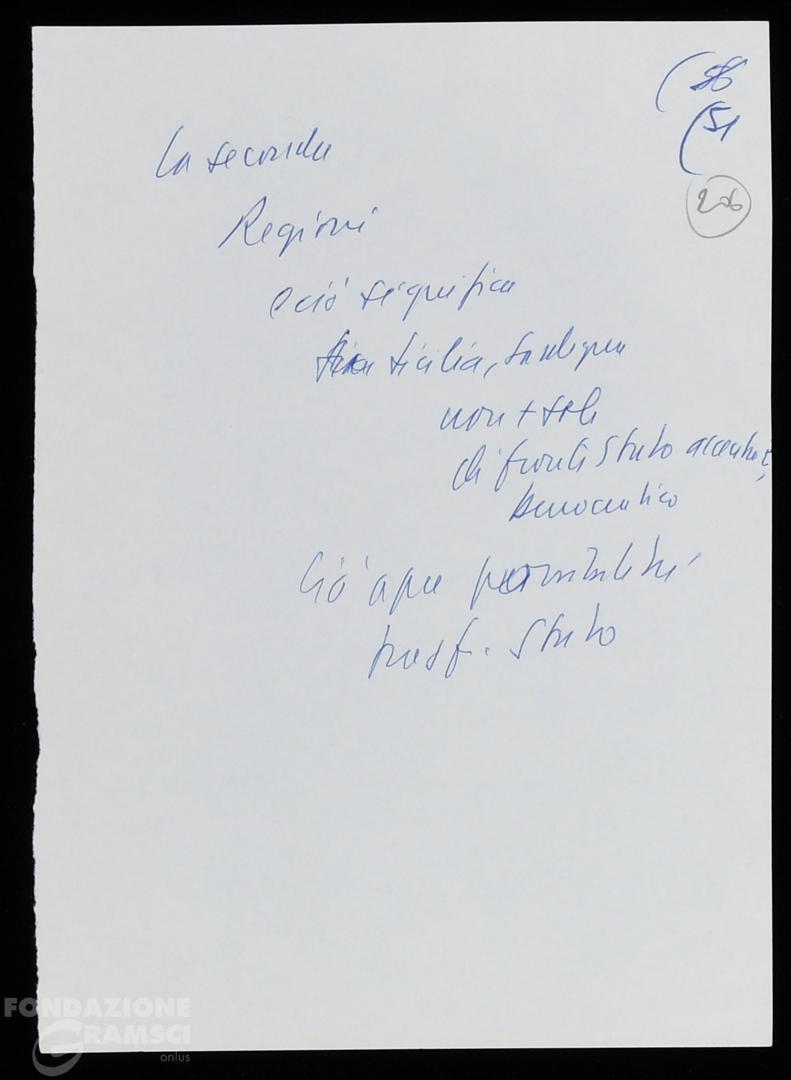 (56
(51
206
La seconda
Regioni
e ciò significa
Sicilia, Sardegna
non + sole
di fronte Stato accentrat,
burocratico
Ciò apre possibilità
trasf. Stato
FONDAZIONE
GRAMSCI
onlus